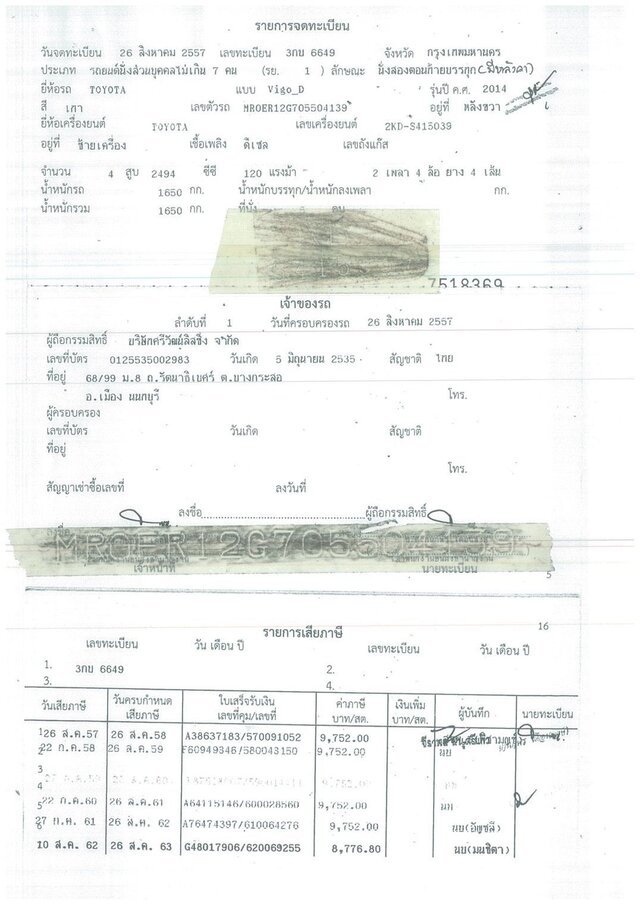 รายการจดทะเบียน
วันจดทะเบียน 26 สิงหาคม 2557 เลขทะเบียน 3กบ 6649 จังหวัด กรุงเทพมหานคร
ประเภท รถยนต์นั่งส่วนบุคคลไม่เกิน 7 คน (รย. 1 ) ลักษณะ นั่งสองตอนท้ายบรรทุก (มีหลังคา)
ยี่ห้อรถ TOYOTA แบบ Vigo_D รุ่นปี ค.ศ. 2014
สี เทา เลขตัวรถ MROER12G705504139 อยู่ที่ หลังขวา
ยี่ห้อเครื่องยนต์ TOYOTA เลขเครื่องยนต์ 2KD-S415039
อยู่ที่ ซ้ายเครื่อง เชื้อเพลิง ดีเซล เลขถังแก๊ส
จำนวน 4 สูบ 2494 ซีซี 120 แรงม้า 2 เพลา 4 ล้อ ยาง 4 เส้น
น้ำหนักรถ 1650 กก. น้ำหนักบรรทุก/น้ำหนักลงเพลา กก.
น้ำหนักรวม 1650 กก. ที่นั่ง
7518369
เจ้าของรถ
ลำดับที่ 1 วันที่ครอบครองรถ 26 สิงหาคม 2557
ผู้ถือกรรมสิทธิ์ บริษัทศรีวัฒน์ลิสซิ่ง จำกัด
เลขที่บัตร 0125535002983 วันเกิด 5 มิถุนายน 2535 สัญชาติ ไทย
ที่อยู่ 68/99 ม.8 ถ.รัตนาธิเบศร์ ต.บางกระสอ
อ.เมือง นนทบุรี โทร.
ผู้ครอบครอง
เลขที่บัตร วันเกิด สัญชาติ
ที่อยู่
โทร.
สัญญาเช่าซื้อเลขที่ ลงวันที่
ลงชื่อ ผู้ถือกรรมสิทธิ์
MROER12G70550
เจ้าหน้าที่ นายทะเบียน
5
16
รายการเสียภาษี
เลขทะเบียน วัน เดือน ปี เลขทะเบียน วัน เดือน ปี
1. 3กบ 6649 2.
3. 4.
วันเสียภาษี วันครบกำหนดเสียภาษี ใบเสร็จรับเงิน เลขที่คุม/เลขที่ ค่าภาษี บาท/สต. เงินเพิ่ม บาท/สต. ผู้บันทึก นายทะเบียน
1 26 ส.ค.57 26 ส.ค.58 A38637183/570091052 9,752.00
2 22 ก.ค.58 26 ส.ค.59 F60949346/580043150 9,752.00 นบ
3
4 9,752.00
5 22 ก.ค.60 26 ส.ค.61 A64115146/600028560 9,752.00 นท
6 27 ก.ค. 61 26 ส.ค. 62 A76474397/610064276 9,752.00 นบ(อัญชลี)
10 ส.ค. 62 26 ส.ค. 63 G48017906/620069255 8,776.80 นบ(มนชิดา)